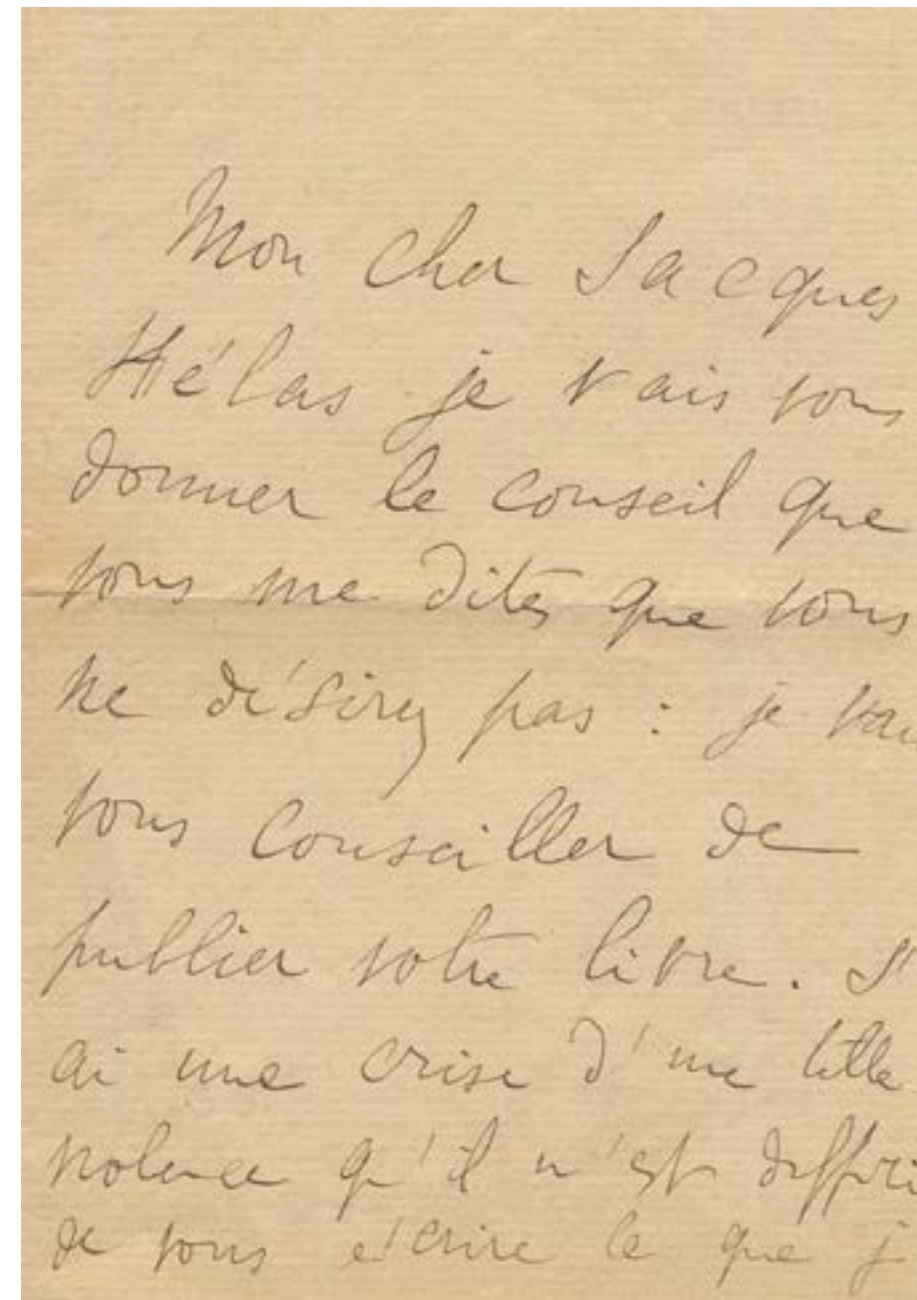 Mon cher Jacques
Hélas je vais vous
donner le conseil que
vous me dites que vous
ne désirez pas : je vai
vous conseiller de
publier votre livre. J'
ai une crise d'une telle
violence qu'il m'est diffici
de vous écrire ce que j